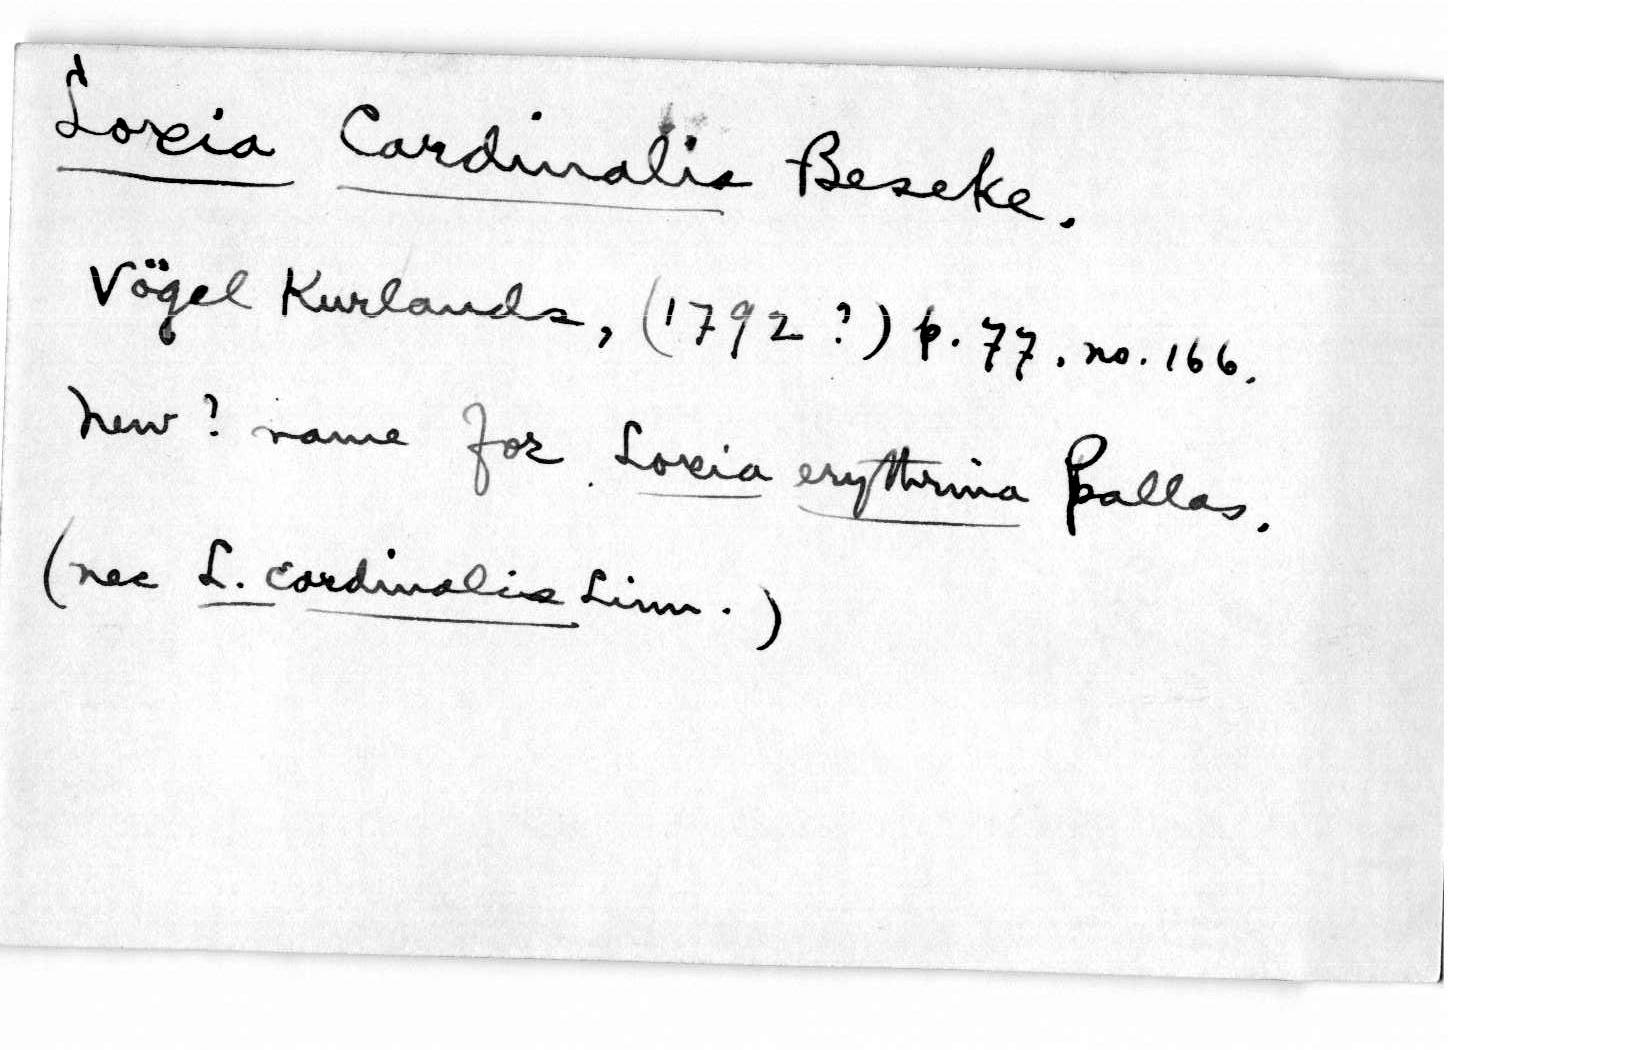 Loxia Cardinalis Beseke.
Vögel Kurlands, (1792?) p. 77. no. 166.
new? name for Loxia erythrina Pallas.
(nec L. cardinalis Linn.)